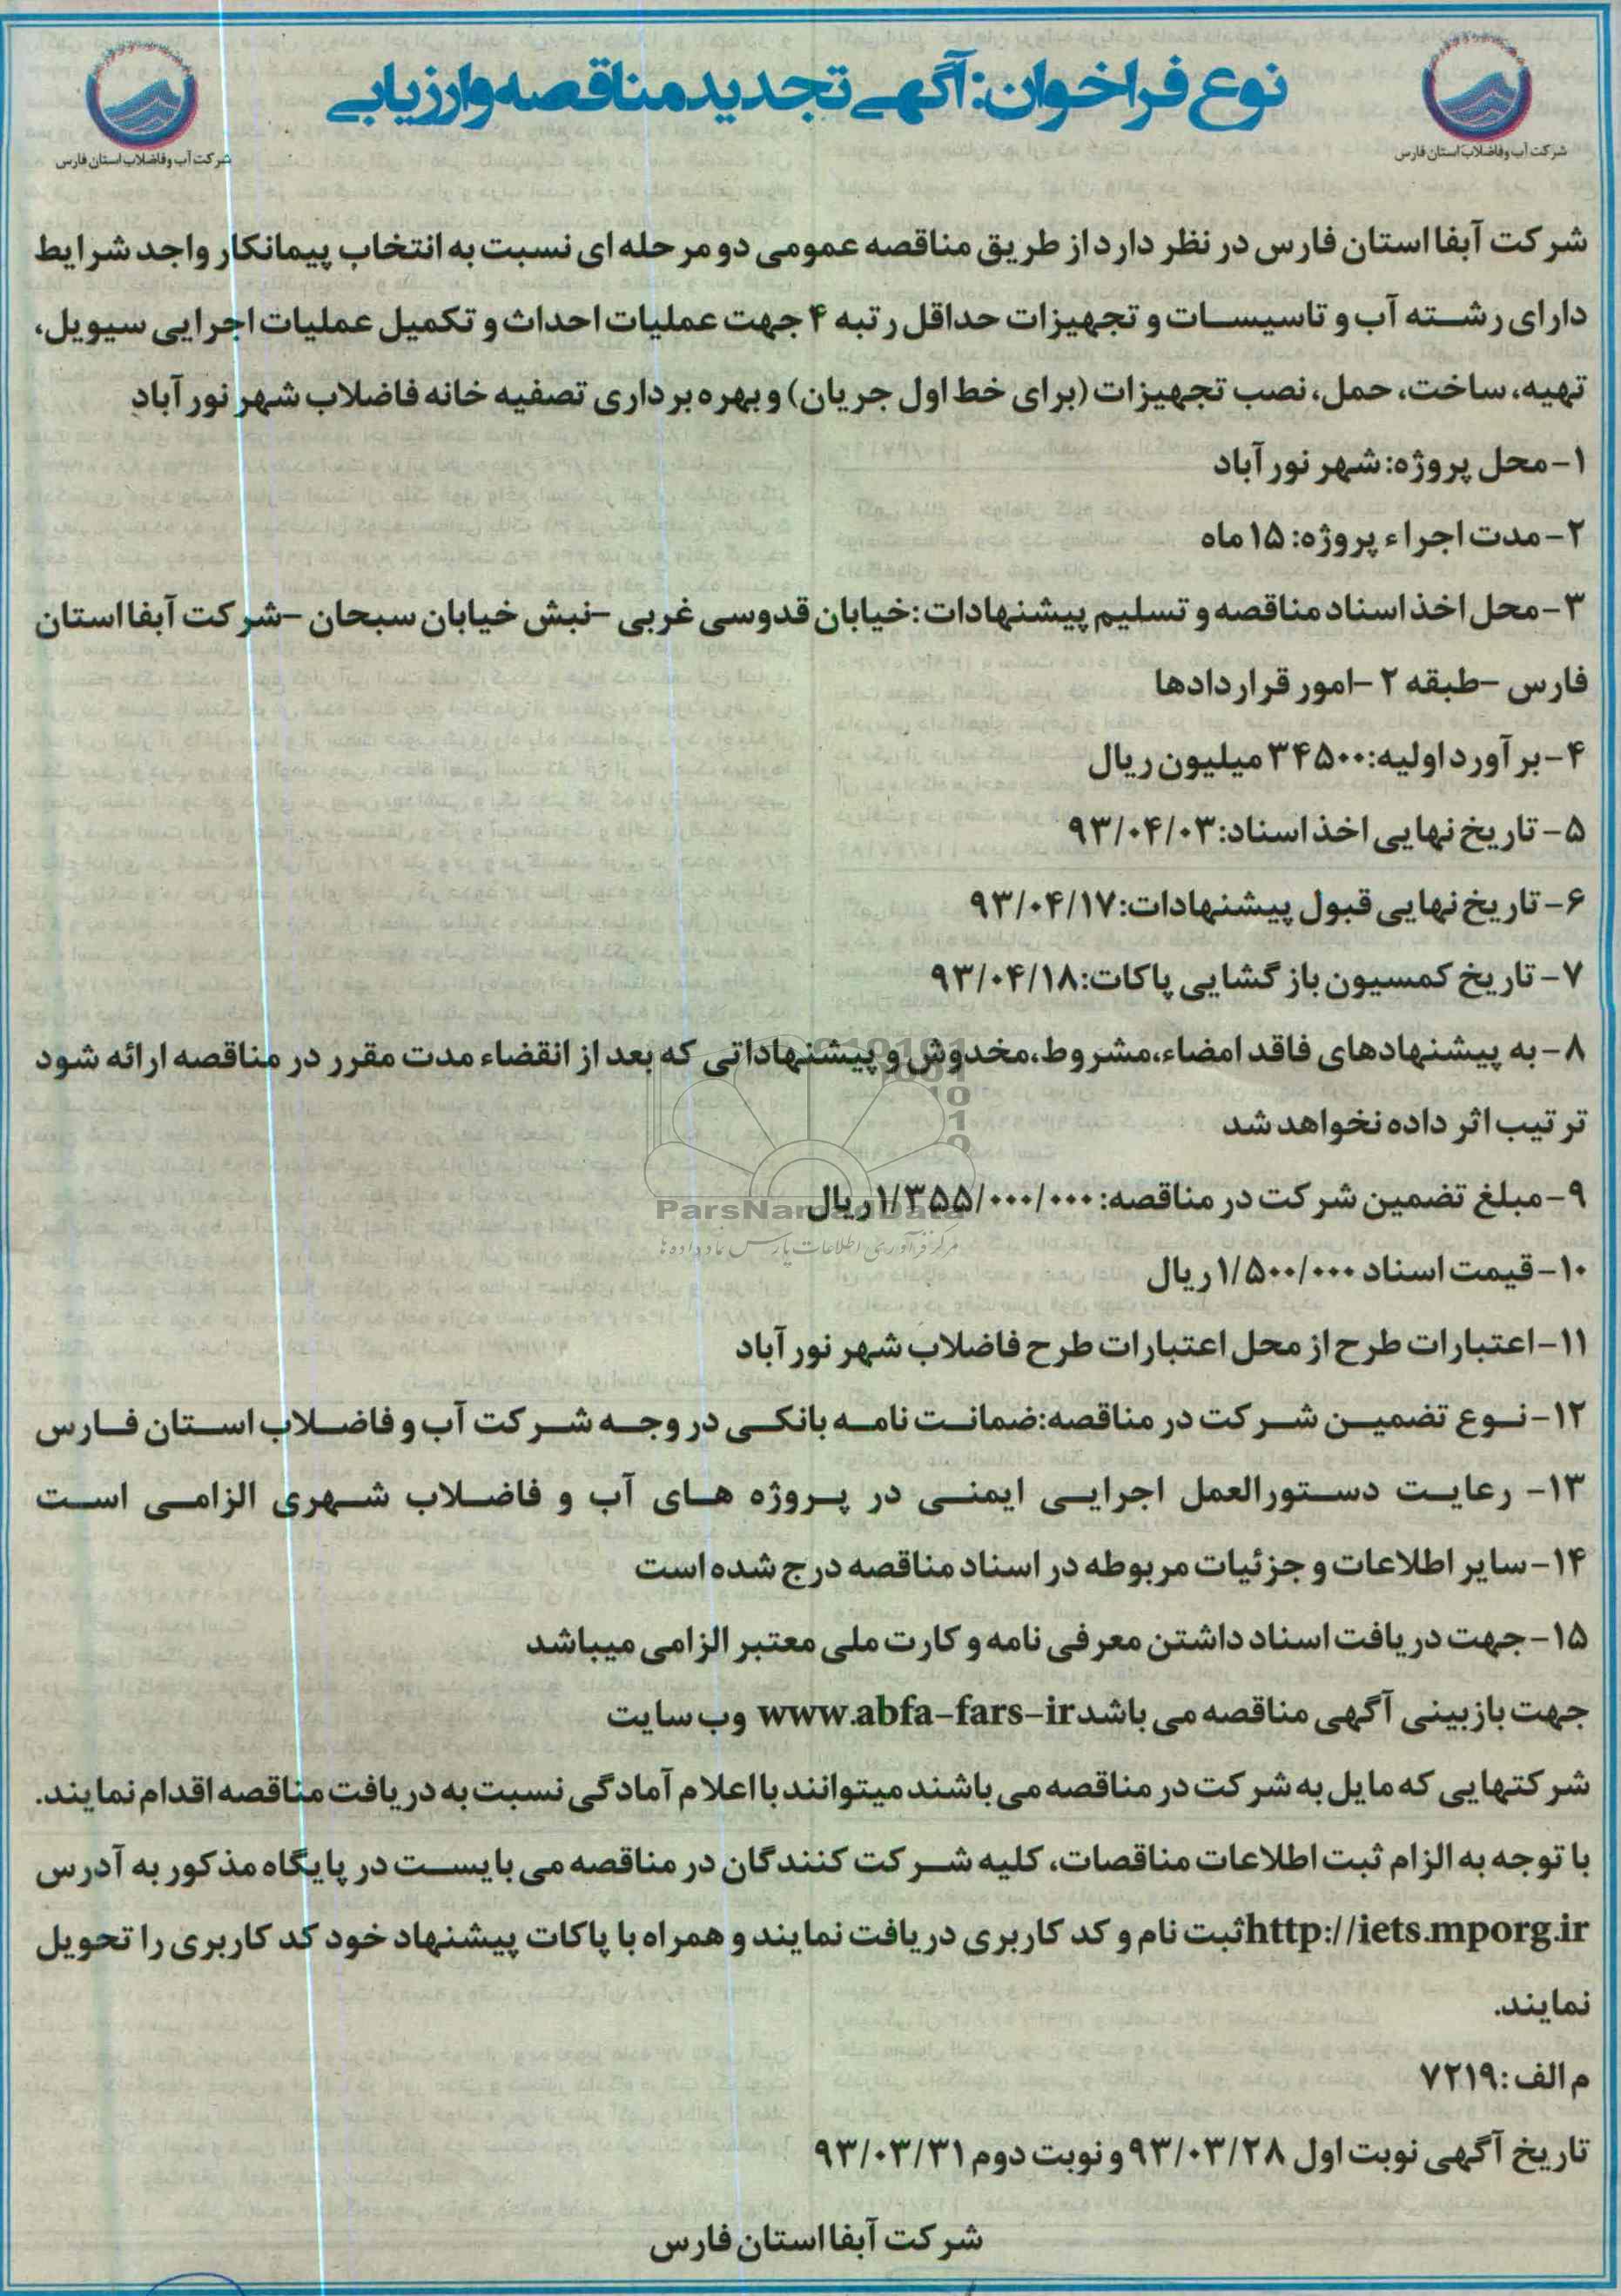 نوع فراخوان: آگهی تجدید مناقصه و ارزیابی
شرکت آب و فاضلاب استان فارس
شرکت آب و فاضلاب استان فارس
شرکت آبفا استان فارس در نظر دارد از طریق مناقصه عمومی دو مرحله ای نسبت به انتخاب پیمانکار واجد شرایط
دارای رشته آب و تاسیسات و تجهیزات حداقل رتبه ۴ جهت عملیات احداث و تکمیل عملیات اجرایی سیویل،
تهیه، ساخت، حمل، نصب تجهیزات (برای خط اول جریان) و بهره برداری تصفیه خانه فاضلاب شهر نورآباد
۱- محل پروژه: شهر نورآباد
۲- مدت اجراء پروژه: ۱۵ ماه
۳- محل اخذ اسناد مناقصه و تسلیم پیشنهادات: خیابان قدوسی غربی -نبش خیابان سبحان -شرکت آبفا استان
فارس -طبقه ۲ -امور قراردادها
۴- برآورد اولیه: ۳۴۵۰۰ میلیون ریال
۵- تاریخ نهایی اخذ اسناد: ۹۳/۰۴/۰۳
۶- تاریخ نهایی قبول پیشنهادات: ۹۳/۰۴/۱۷
۷- تاریخ کمسیون بازگشایی پاکات: ۹۳/۰۴/۱۸
۸- به پیشنهادهای فاقد امضاء، مشروط، مخدوش و پیشنهاداتی که بعد از انقضاء مدت مقرر در مناقصه ارائه شود
ترتیب اثر داده نخواهد شد
۹- مبلغ تضمین شرکت در مناقصه: ۱/۳۵۵/۰۰۰/۰۰۰ ریال
ParsNamadData
مرکز فرآوری اطلاعات پارس نماد داده ها
۱۰- قیمت اسناد ۱/۵۰۰/۰۰۰ ریال
۱۱- اعتبارات طرح از محل اعتبارات طرح فاضلاب شهر نورآباد
۱۲- نوع تضمین شرکت در مناقصه: ضمانت نامه بانکی در وجه شرکت آب و فاضلاب استان فارس
۱۳- رعایت دستورالعمل اجرایی ایمنی در پروژه های آب و فاضلاب شهری الزامی است
۱۴- سایر اطلاعات و جزئیات مربوطه در اسناد مناقصه درج شده است
۱۵- جهت دریافت اسناد داشتن معرفی نامه و کارت ملی معتبر الزامی میباشد
جهت بازبینی آگهی مناقصه می باشد www.abfa-fars-ir وب سایت
شرکتهایی که مایل به شرکت در مناقصه می باشند میتوانند با اعلام آمادگی نسبت به دریافت مناقصه اقدام نمایند.
با توجه به الزام ثبت اطلاعات مناقصات، کلیه شرکت کنندگان در مناقصه می بایست در پایگاه مذکور به آدرس
http://iets.mporg.ir ثبت نام و کد کاربری دریافت نمایند و همراه با پاکات پیشنهاد خود کد کاربری را تحویل
نمایند.
م الف: ۷۲۱۹
تاریخ آگهی نوبت اول ۹۳/۰۳/۲۸ و نوبت دوم ۹۳/۰۳/۳۱
شرکت آبفا استان فارس